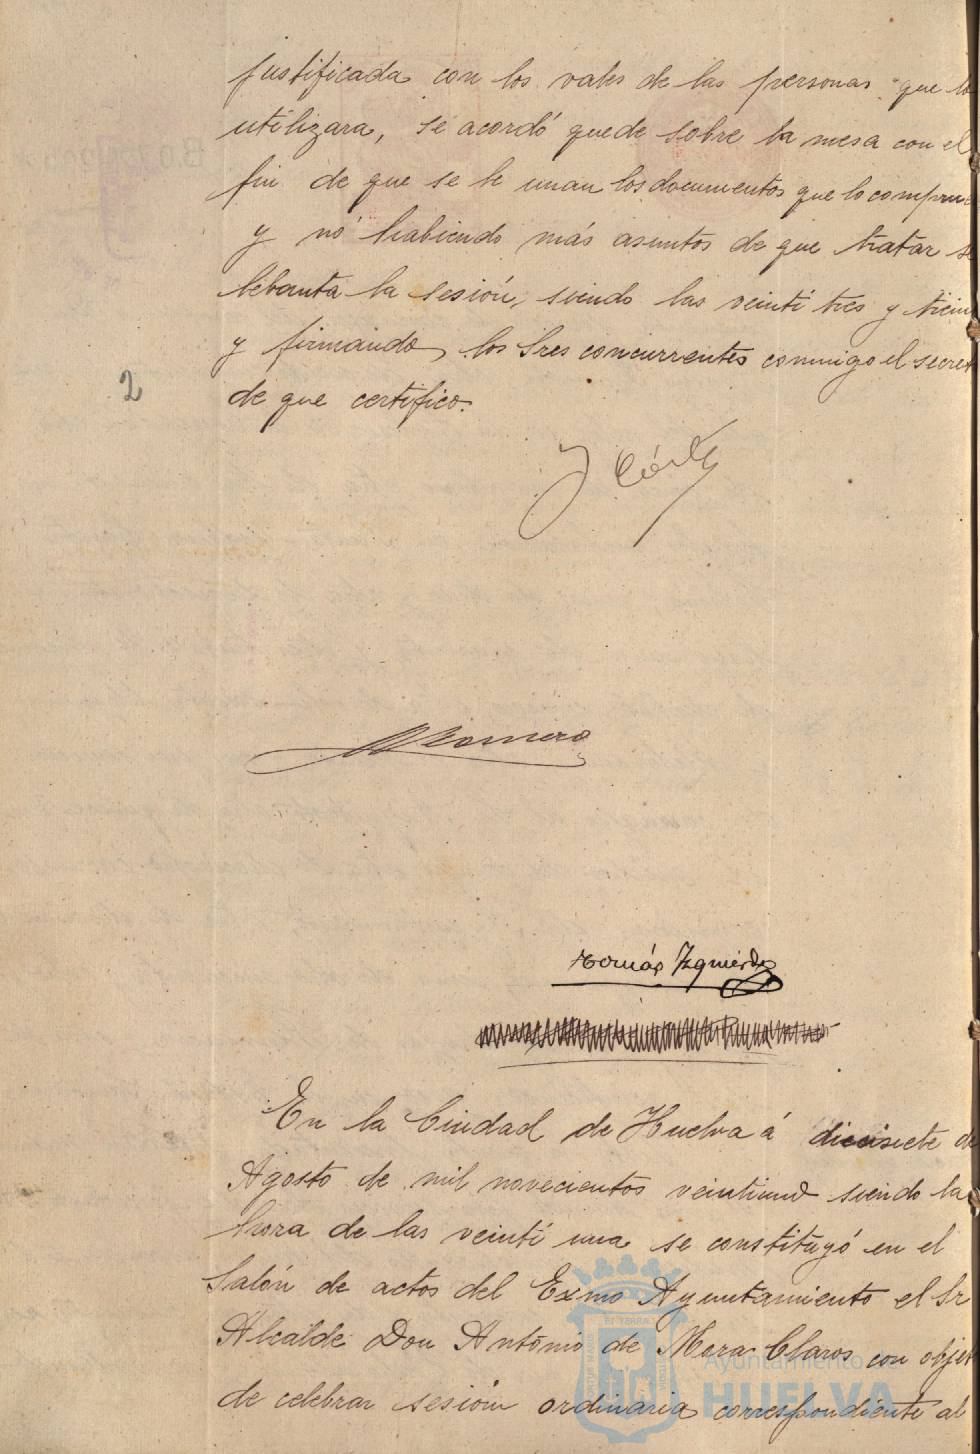 justificada con los vales de las personas que lo
utilizara, se acordó quede sobre la mesa con el
fin de que se le unan los documentos que lo comprue
y nó habiendo más asuntos de que tratar se
lebanta la sesión, siendo las veinti tres y trein
y firmando los Sres concurrentes conmigo el secret
de que certifico.
2
Romero
Tomás Izquierdo
En la Ciudad de Huelva á diecisiete de
Agosto de mil novecientos veintiuno siendo la
hora de las veinti una se constituyó en el
Salón de actos del Exmo Ayuntamiento el Sr
Alcalde Don António de Mora Claros con objet
de celebrar sesión ordinaria correspondiente al
Ayuntamiento de
HUELVA